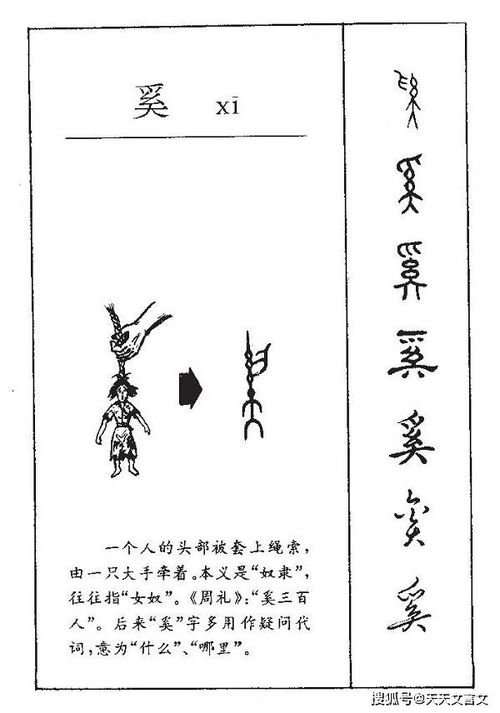 奚 xī
一个人的头部被套上绳索,
由一只大手牵着。本义是“奴隶”,
往往指“女奴”。《周礼》:“奚三百
人”。后来“奚”字多用作疑问代
词,意为“什么”、“哪里”。
奚
奚
奚
奚
奚
奚
奚
搜狐号@天天文言文